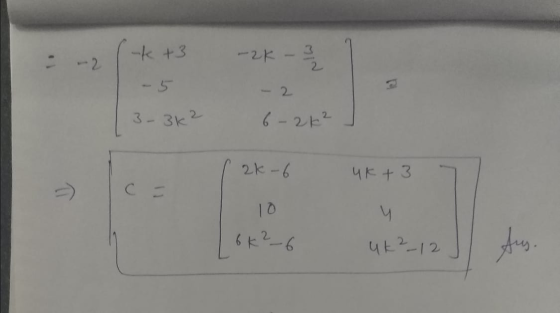 = -2 [ -k + 3 -2k - 3/2
-5 -2
3 - 3k² 6 - 2k² ] =
⇒ C = [ 2k - 6 4k + 3
10 4
6k² - 6 4k² - 12 ] Ans.